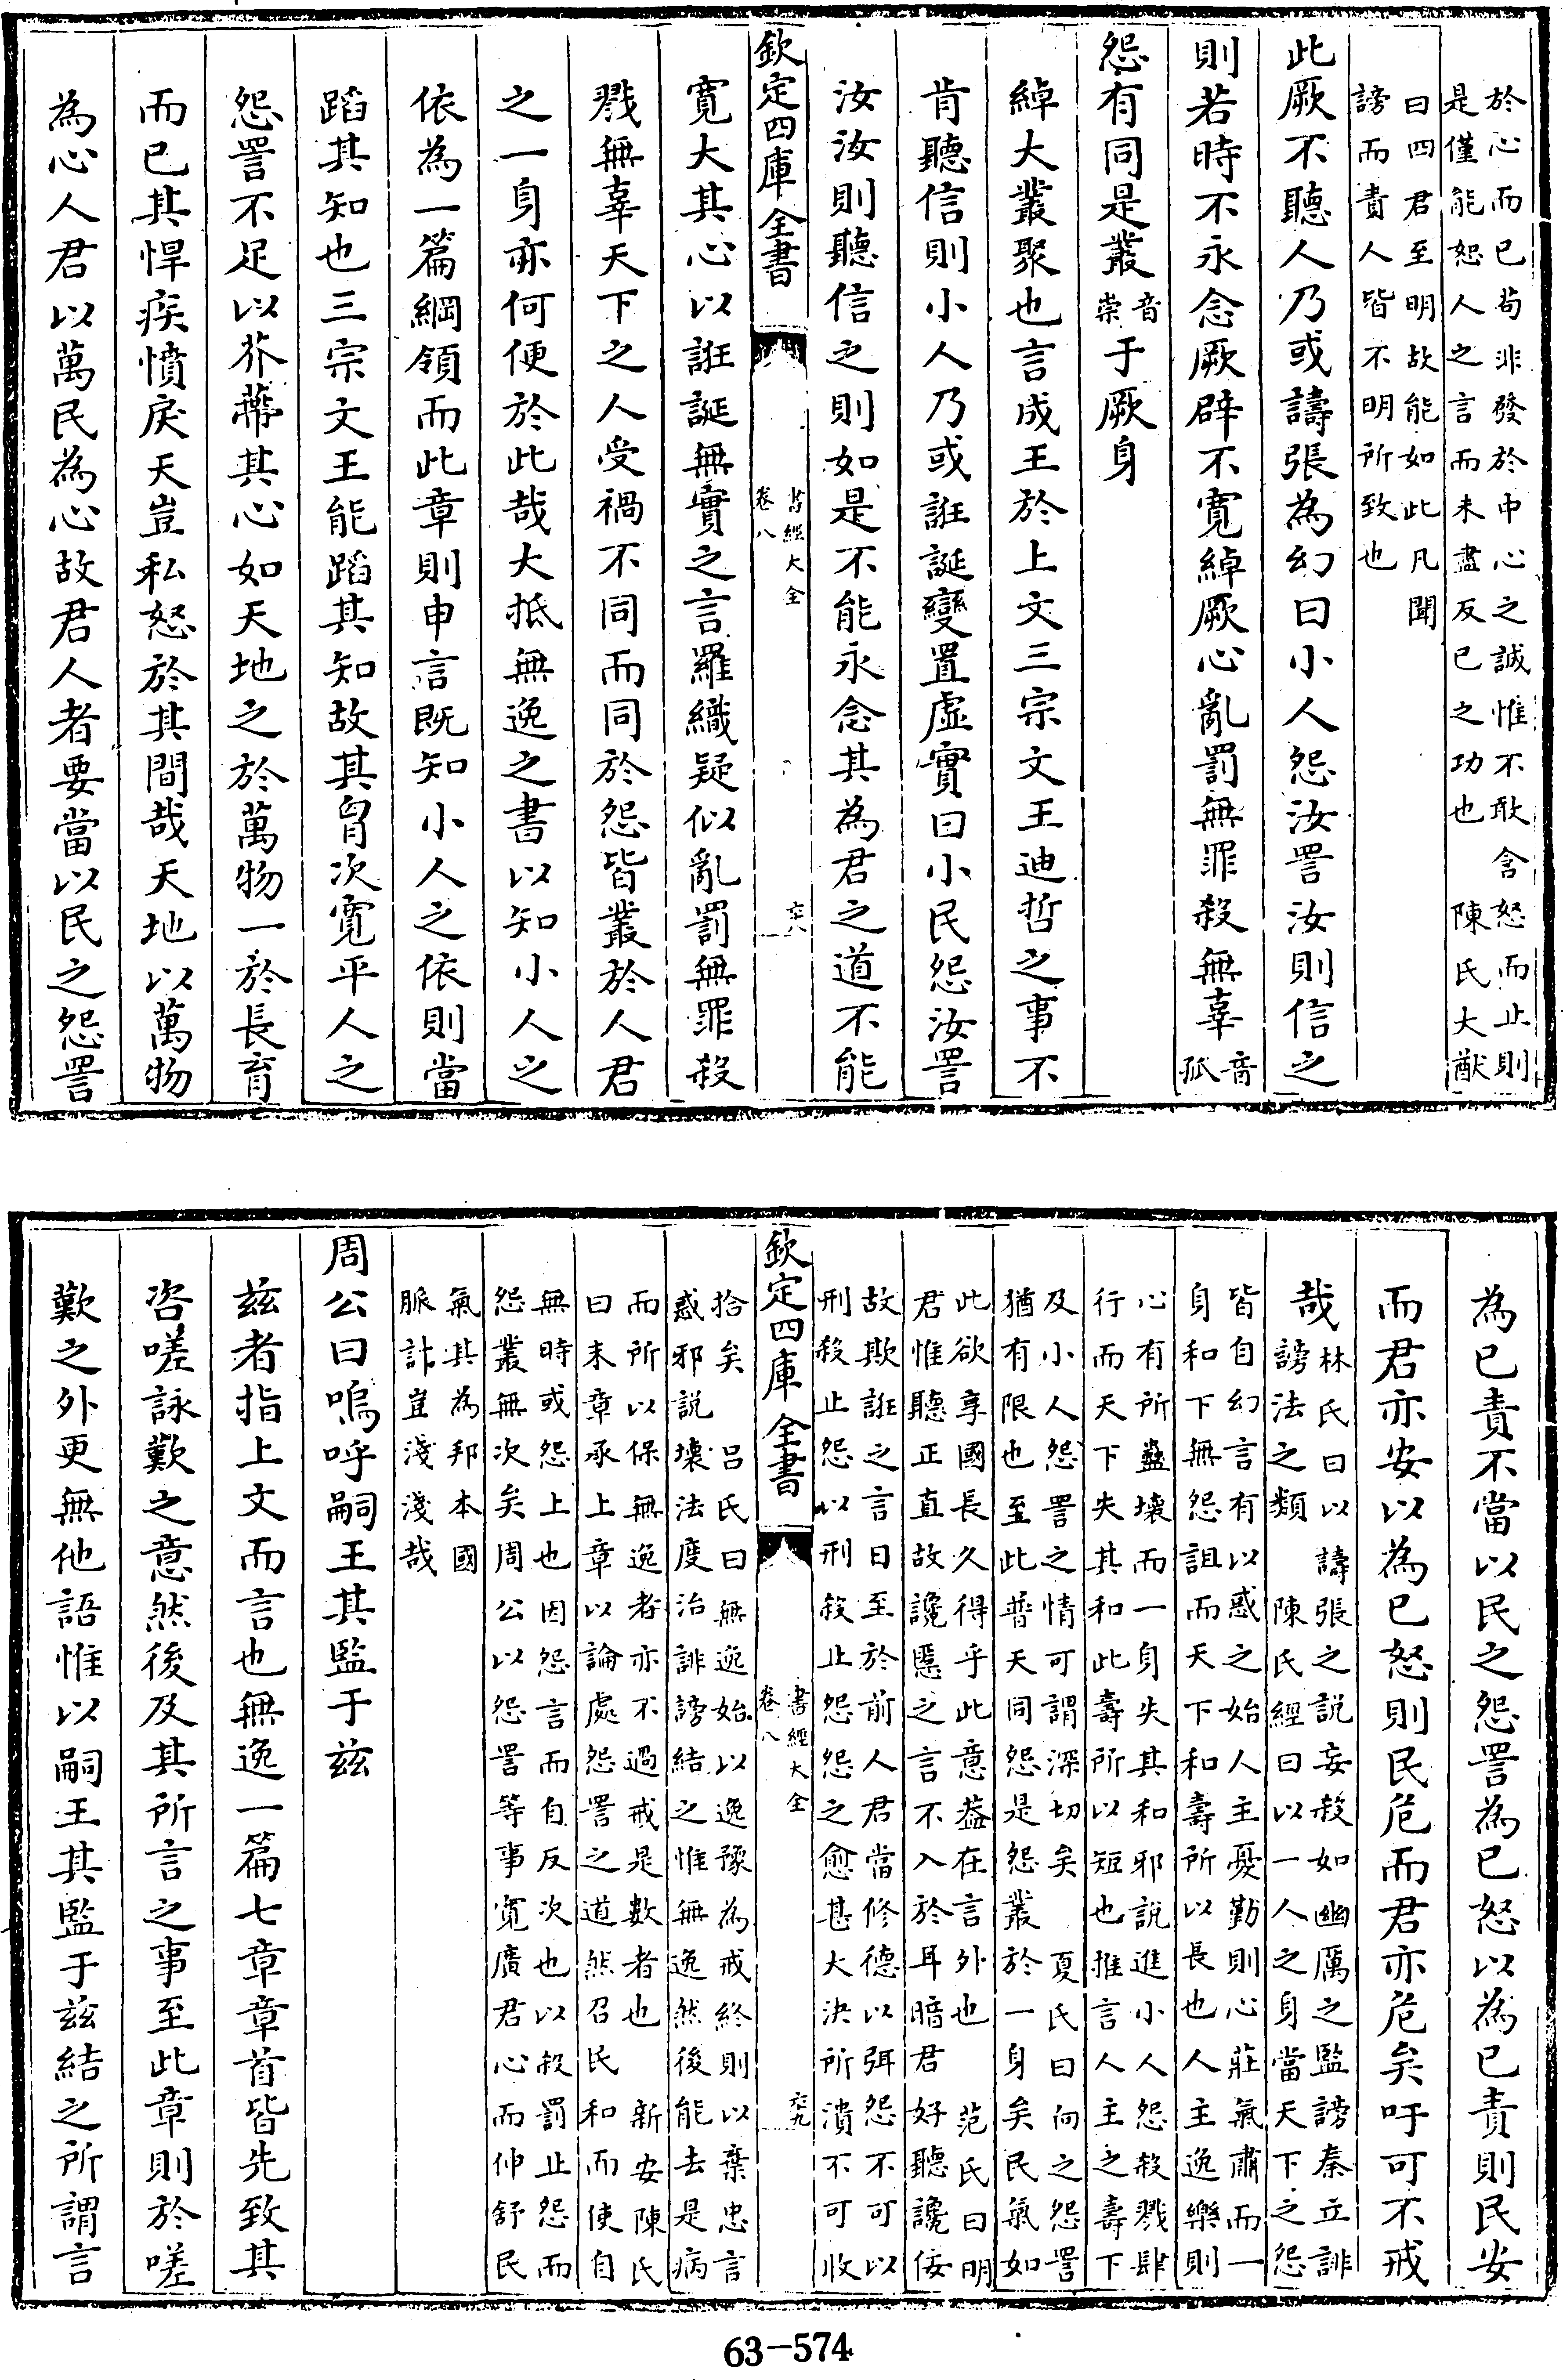 於心而已苟非發於中心之誠惟不敢含怒而止則
是僅能恕人之言而未盡反已之功也　陳氏大猷
曰四君至明故能如此凡聞
謗而責人皆不明所致也
此厥不聽人乃或譸張為幻曰小人怨汝詈汝則信之
則若時不永念厥辟不寛綽厥心亂罰無罪殺無辜音
孤
怨有同是叢音
崇于厥身
綽大叢聚也言成王於上文三宗文王迪哲之事不
肯聽信則小人乃或誑誕變置虛實曰小民怨汝詈
汝汝則聽信之則如是不能永念其為君之道不能
欽定四庫全書
書經大全
卷八
六十八
寛大其心以誑誕無實之言羅織疑似亂罰無罪殺
戮無辜天下之人受禍不同而同於怨皆叢於人君
之一身亦何便於此哉大抵無逸之書以知小人之
依為一篇綱領而此章則申言既知小人之依則當
蹈其知也三宗文王能蹈其知故其胷次寛平人之
怨詈不足以芥蔕其心如天地之於萬物一於長育
而已其悍疾憤戾天豈私怒於其間哉天地以萬物
為心人君以萬民為心故君人者要當以民之怨詈
為已責不當以民之怨詈為已怒以為已責則民安
而君亦安以為已怒則民危而君亦危矣吁可不戒
哉林氏曰以譸張之説妄殺如幽厲之監謗秦立誹
謗法之類　陳氏經曰以一人之身當天下之怨
皆自幻言有以惑之始人主憂勤則心莊氣肅而一
身和下無怨詛而天下和壽所以長也人主逸樂則
心有所蠱壞而一身失其和邪説進小人怨殺戮肆
行而天下失其和此壽所以短也推言人主之壽下
及小人怨詈之情可謂深切矣　夏氏曰向之怨詈
猶有限也至此普天同怨是怨叢於一身矣民氣如
此欲享國長久得乎此意葢在言外也　范氏曰明
君惟聽正直故讒慝之言不入於耳暗君好聽讒佞
故欺誑之言日至於前人君當修德以弭怨不可以
刑殺止怨以刑殺止怨怨之愈甚大決所潰不可收
欽定四庫全書
書經大全
卷八
六十九
拾矣　吕氏曰無逸始以逸豫為戒終則以棄忠言
惑邪説壞法度治誹謗結之惟無逸然後能去是病
而所以保無逸者亦不過戒是數者也　新安陳氏
曰末章承上章以論處怨詈之道然召民和而使自
無時或怨上也因怨言而自反次也以殺罰止怨而
怨叢無次矣周公以怨詈等事寛廣君心而仲舒民
氣其為邦本國
脈計豈淺淺哉
周公曰嗚呼嗣王其監于兹
兹者指上文而言也無逸一篇七章章首皆先致其
咨嗟詠歎之意然後及其所言之事至此章則於嗟
歎之外更無他語惟以嗣王其監于兹結之所謂言
63-574